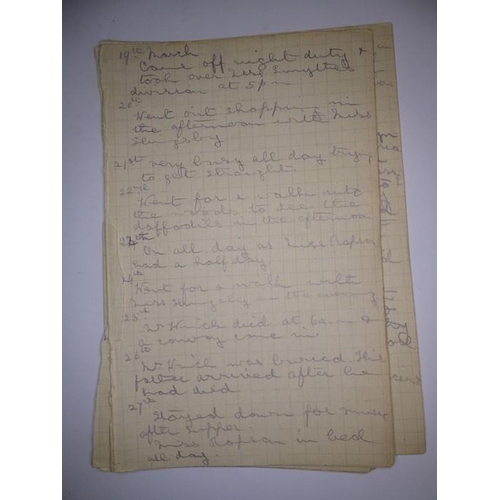 19th March
Came off night duty &
took over Miss Smythe's
division at 5 pm
20th
Went out shopping in
the afternoon with Miss
Slingsby
21st Very busy all day trying
to get straight.
22nd
Went for a walk into
the woods to see the
daffodils in the afternoon
On all day as Miss Rapson
had a half day
Went for a walk with
Miss Slingsby in the
25th
Mr died at &
a convoy came in
26th
Mr was buried. His
arrived after he
had died
27th
Stayed down for music
after supper.
Miss Rapson in bed
all day.